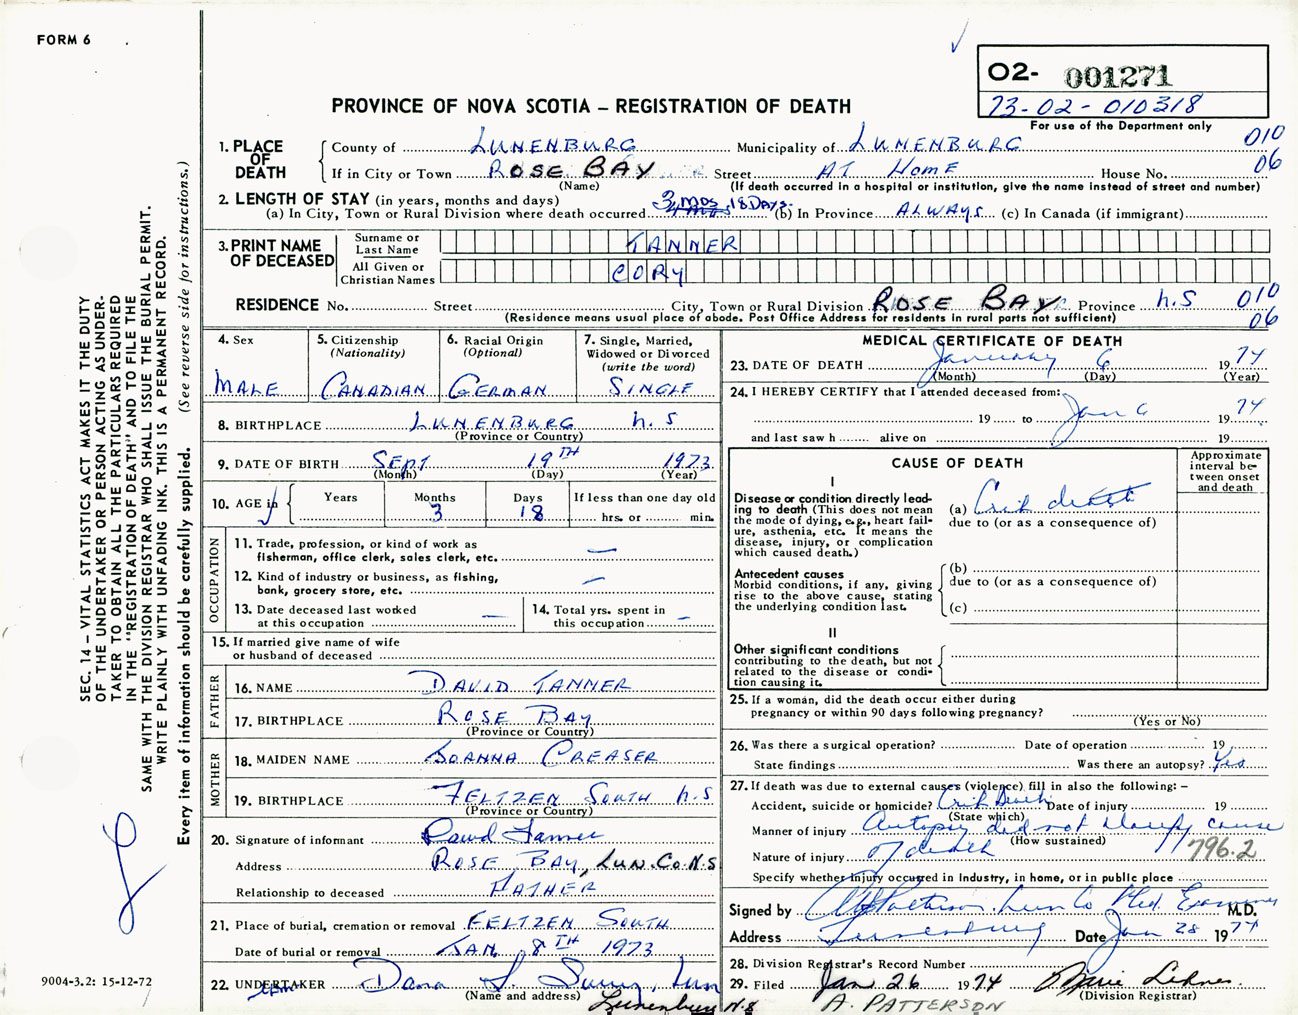 FORM 6
O2- 001271
73-02-010318
PROVINCE OF NOVA SCOTIA – REGISTRATION OF DEATH
For use of the Department only
1. PLACE OF DEATH
County of LUNENBURG Municipality of LUNENBURG 010
If in City or Town ROSE BAY Street AT HOME House No. 06
(Name) (If death occurred in a hospital or institution, give the name instead of street and number)
2. LENGTH OF STAY (in years, months and days)
(a) In City, Town or Rural Division where death occurred 3 mos 18 DAYS (b) In Province ALWAYS (c) In Canada (if immigrant)
3. PRINT NAME OF DECEASED
Surname or Last Name TANNER
All Given or Christian Names CORY
RESIDENCE No. Street City, Town or Rural Division ROSE BAY Province N.S 010
(Residence means usual place of abode. Post Office Address for residents in rural parts not sufficient) 06
4. Sex
MALE
5. Citizenship (Nationality)
CANADIAN
6. Racial Origin (Optional)
GERMAN
7. Single, Married, Widowed or Divorced (write the word)
SINGLE
8. BIRTHPLACE LUNENBURG N.S
(Province or Country)
9. DATE OF BIRTH SEPT 19TH 1973
(Month) (Day) (Year)
10. AGE in Years Months Days If less than one day old
3 18 hrs. or min.
OCCUPATION
11. Trade, profession, or kind of work as
fisherman, office clerk, sales clerk, etc. —
12. Kind of industry or business, as fishing,
bank, grocery store, etc. —
13. Date deceased last worked
at this occupation —
14. Total yrs. spent in
this occupation —
15. If married give name of wife
or husband of deceased
FATHER
16. NAME DAVID TANNER
17. BIRTHPLACE ROSE BAY
(Province or Country)
MOTHER
18. MAIDEN NAME JOANNA CREASER
19. BIRTHPLACE FELTZEN SOUTH N.S
(Province or Country)
20. Signature of informant David Tanner
Address ROSE BAY, LUN. CO. N.S
Relationship to deceased FATHER
21. Place of burial, cremation or removal FELTZEN SOUTH
Date of burial or removal JAN. 8TH 1973
22. UNDERTAKER Dana L. Lun
(Name and address) Lunenburg N.S
MEDICAL CERTIFICATE OF DEATH
23. DATE OF DEATH January 6 1974
(Month) (Day) (Year)
24. I HEREBY CERTIFY that I attended deceased from:
19 to Jan 6 1974
and last saw h alive on 19
CAUSE OF DEATH
Approximate interval between onset and death
I
Disease or condition directly lead-
ing to death (This does not mean
the mode of dying, e.g., heart fail-
ure, asthenia, etc. It means the
disease, injury, or complication
which caused death.)
(a) Crib death
due to (or as a consequence of)
Antecedent causes
Morbid conditions, if any, giving
rise to the above cause, stating
the underlying condition last.
(b)
due to (or as a consequence of)
(c)
II
Other significant conditions
contributing to the death, but not
related to the disease or condi-
tion causing it.
25. If a woman, did the death occur either during
pregnancy or within 90 days following pregnancy?
(Yes or No)
26. Was there a surgical operation? Date of operation 19
State findings Was there an autopsy? Yes
27. If death was due to external causes (violence) fill in also the following: –
Accident, suicide or homicide? Crib Death Date of injury 19
(State which)
Manner of injury Autopsy did not clarify cause
(How sustained)
Nature of injury of death 796.2
Specify whether injury occurred in Industry, in home, or in public place
Signed by Patterson Lun Co Med. Examiner M.D.
Address Lunenburg Date Jan 28 1974
28. Division Registrar's Record Number
29. Filed Jan 26 1974 Marie
(Division Registrar)
A. PATTERSON
SEC. 14 – VITAL STATISTICS ACT MAKES IT THE DUTY
OF THE UNDERTAKER OR PERSON ACTING AS UNDER-
TAKER TO OBTAIN ALL THE PARTICULARS REQUIRED
IN THE "REGISTRATION OF DEATH" AND TO FILE THE
SAME WITH THE DIVISION REGISTRAR WHO SHALL ISSUE THE BURIAL PERMIT.
WRITE PLAINLY WITH UNFADING INK. THIS IS A PERMANENT RECORD.
Every item of information should be carefully supplied. (See reverse side for instructions.)
9004-3.2: 15-12-72